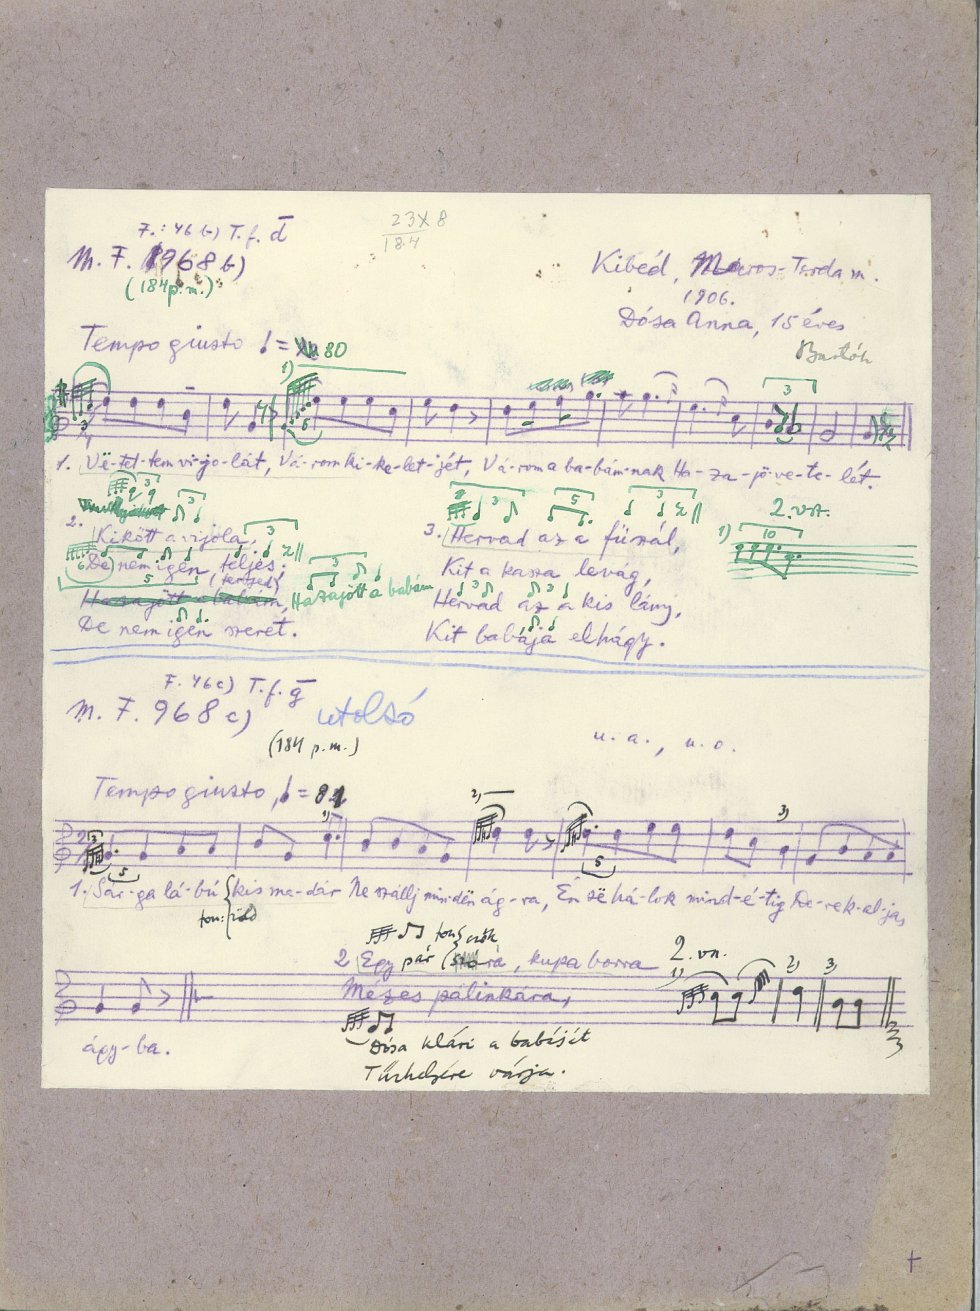 F.: 46 b) T. f. d̄
23X8
184
M. F. 968 b)
(184 p.m.)
Kibéd, Maros-Torda m.
1906.
Dósa Anna, 15 éves
Bartók
Tempo giusto ♩ = 80
1)
3
1. Vë-tet-tem vi-jo-lát, Vá-rom ki-ke-let-jét, Vá-rom a ba-bám-nak Ha-za-jö-ve-te-lét.
2. Kikött a vijola,
De nem igen teljës.
(terjed)
Hazajött a babám, Hazajött a babám
De nem igen szeret.
3. Hervad az a fűszál,
Kit a kasza levág,
Hervad az a kis lány,
Kit babája elhágy.
2. vsz.
1) 10
F. 46 c) T. f. ḡ
M. F. 968 c) utolsó
(184 p.m.)
u. a., u. o.
Tempo giusto, ♩ = 81
1) 2) 3)
1. Sár-ga lá-bú kis ma-dár Ne szállj min-dën ág-ra, Én së há-lok mind-é-tig De-rek-al-jas
fon: zöld
fon: szók
2. Egy pár szó-ra, kupa borra
Mézes pálinkára,
Dósa Klári a babáját
Tűzhelyére várja.
2. vn.
1) 2) 3)
ágy-ba.